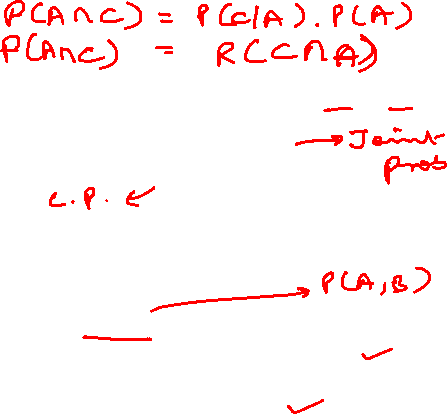 P(A∩C) = P(C/A) . P(A)
P(A∩C) = P(C∩A)
→ Joint
prob
C.P. ←
→ P(A,B)